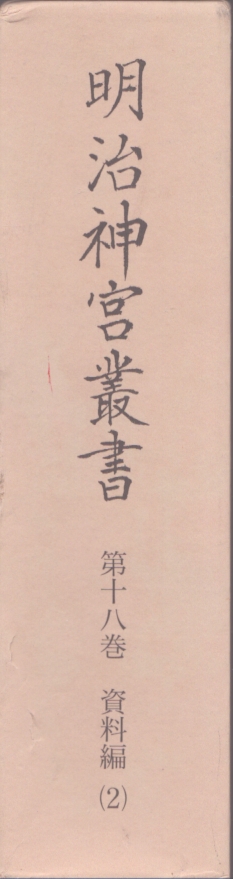 明治神宮叢書
第十八巻　資料編(2)